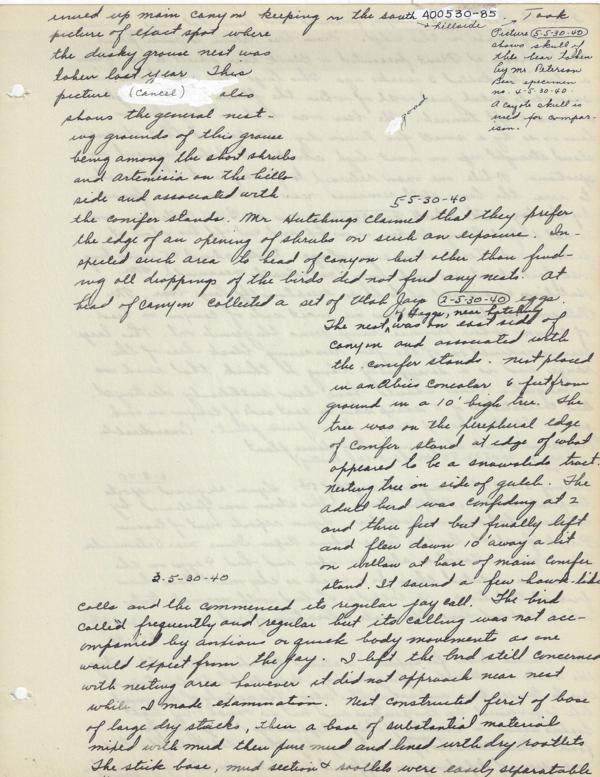 inued up main canyon keeping on the south A00530-85. Took
+ hillside
picture of exact spot where
the dusky grouse nest was
taken last year. This
picture (Cancel) also
shows the general nest-
ing grounds of this grouse
being among the short shrubs
and Artemisia on the hills
side and associated with
Picture (5-5-30-40)
shows skull of
the bear taken
by Mr. Peterson
Bear specimen
no. 4-5-30-40.
A coyote skull is
used for compar-
ison.
good
5-5-30-40
the conifer stands. Mr Hutchings claimed that they prefer
the edge of an opening of shrubs on such an exposure. In-
spected such area to head of canyon but other than find-
ing old droppings of the birds did not find any nests. At
head of canyon collected a set of Utah Jays (2-5-30-40) eggs.
of 4 eggs, near hatching
The nest, was on east side of
canyon and associated with
the conifer stands. Nest placed
in an Abies Concolor 6 feet from
ground in a 10' high tree. The
tree was on the peripheral edge
of conifer stand at edge of what
appeared to be a snowslide tract.
Nesting tree on side of gulch. The
adult bird was confiding at 2
and three feet but finally left
and flew down 10' away & lit
on willow at base of main conifer
stand. It sound a few hawk like
3-5-30-40
calls and the commenced its regular jay call. The bird
called frequently and regular but its calling was not acc-
ompanied by anxious or quick body movements as one
would expect from the Jay. I left the bird still concerned
with nesting area however it did not approach near nest
while I made examination. Nest constructed first of base
of large dry stacks, then a base of substantial material
mixed with mud then pure mud and lined with dry rootlets
The stick base, mud section & rootlets were easily separatable